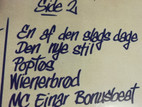 Side 2
En af den slags dage
Den nye stil
Poptøs
Wienerbrød
MC Einar Bonusbeat